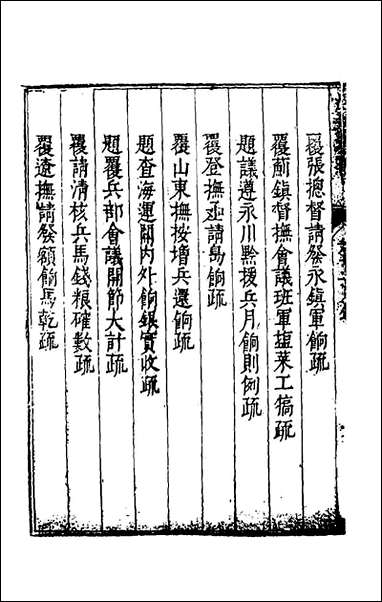 覆張總督請發永鎮軍餉疏
覆薊鎮督撫會議班軍塩菜工犒疏
題議遵永川黔援兵月餉則例疏
覆登撫亟請島餉疏
覆山東撫按增兵還餉疏
題查海運關內外餉銀實收疏
題覆兵部會議開節大計疏
覆請清核兵馬錢粮確數疏
覆遼撫請發額餉馬乾疏